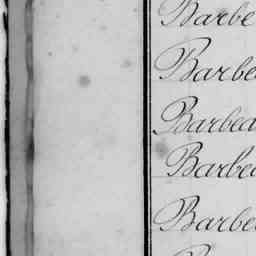 Barbe
Barbea
Barbea
Barbea
Barbea